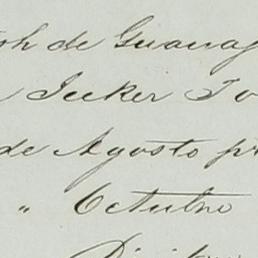 de Guanaj
Jecker To
de Agosto pr
" Octubre